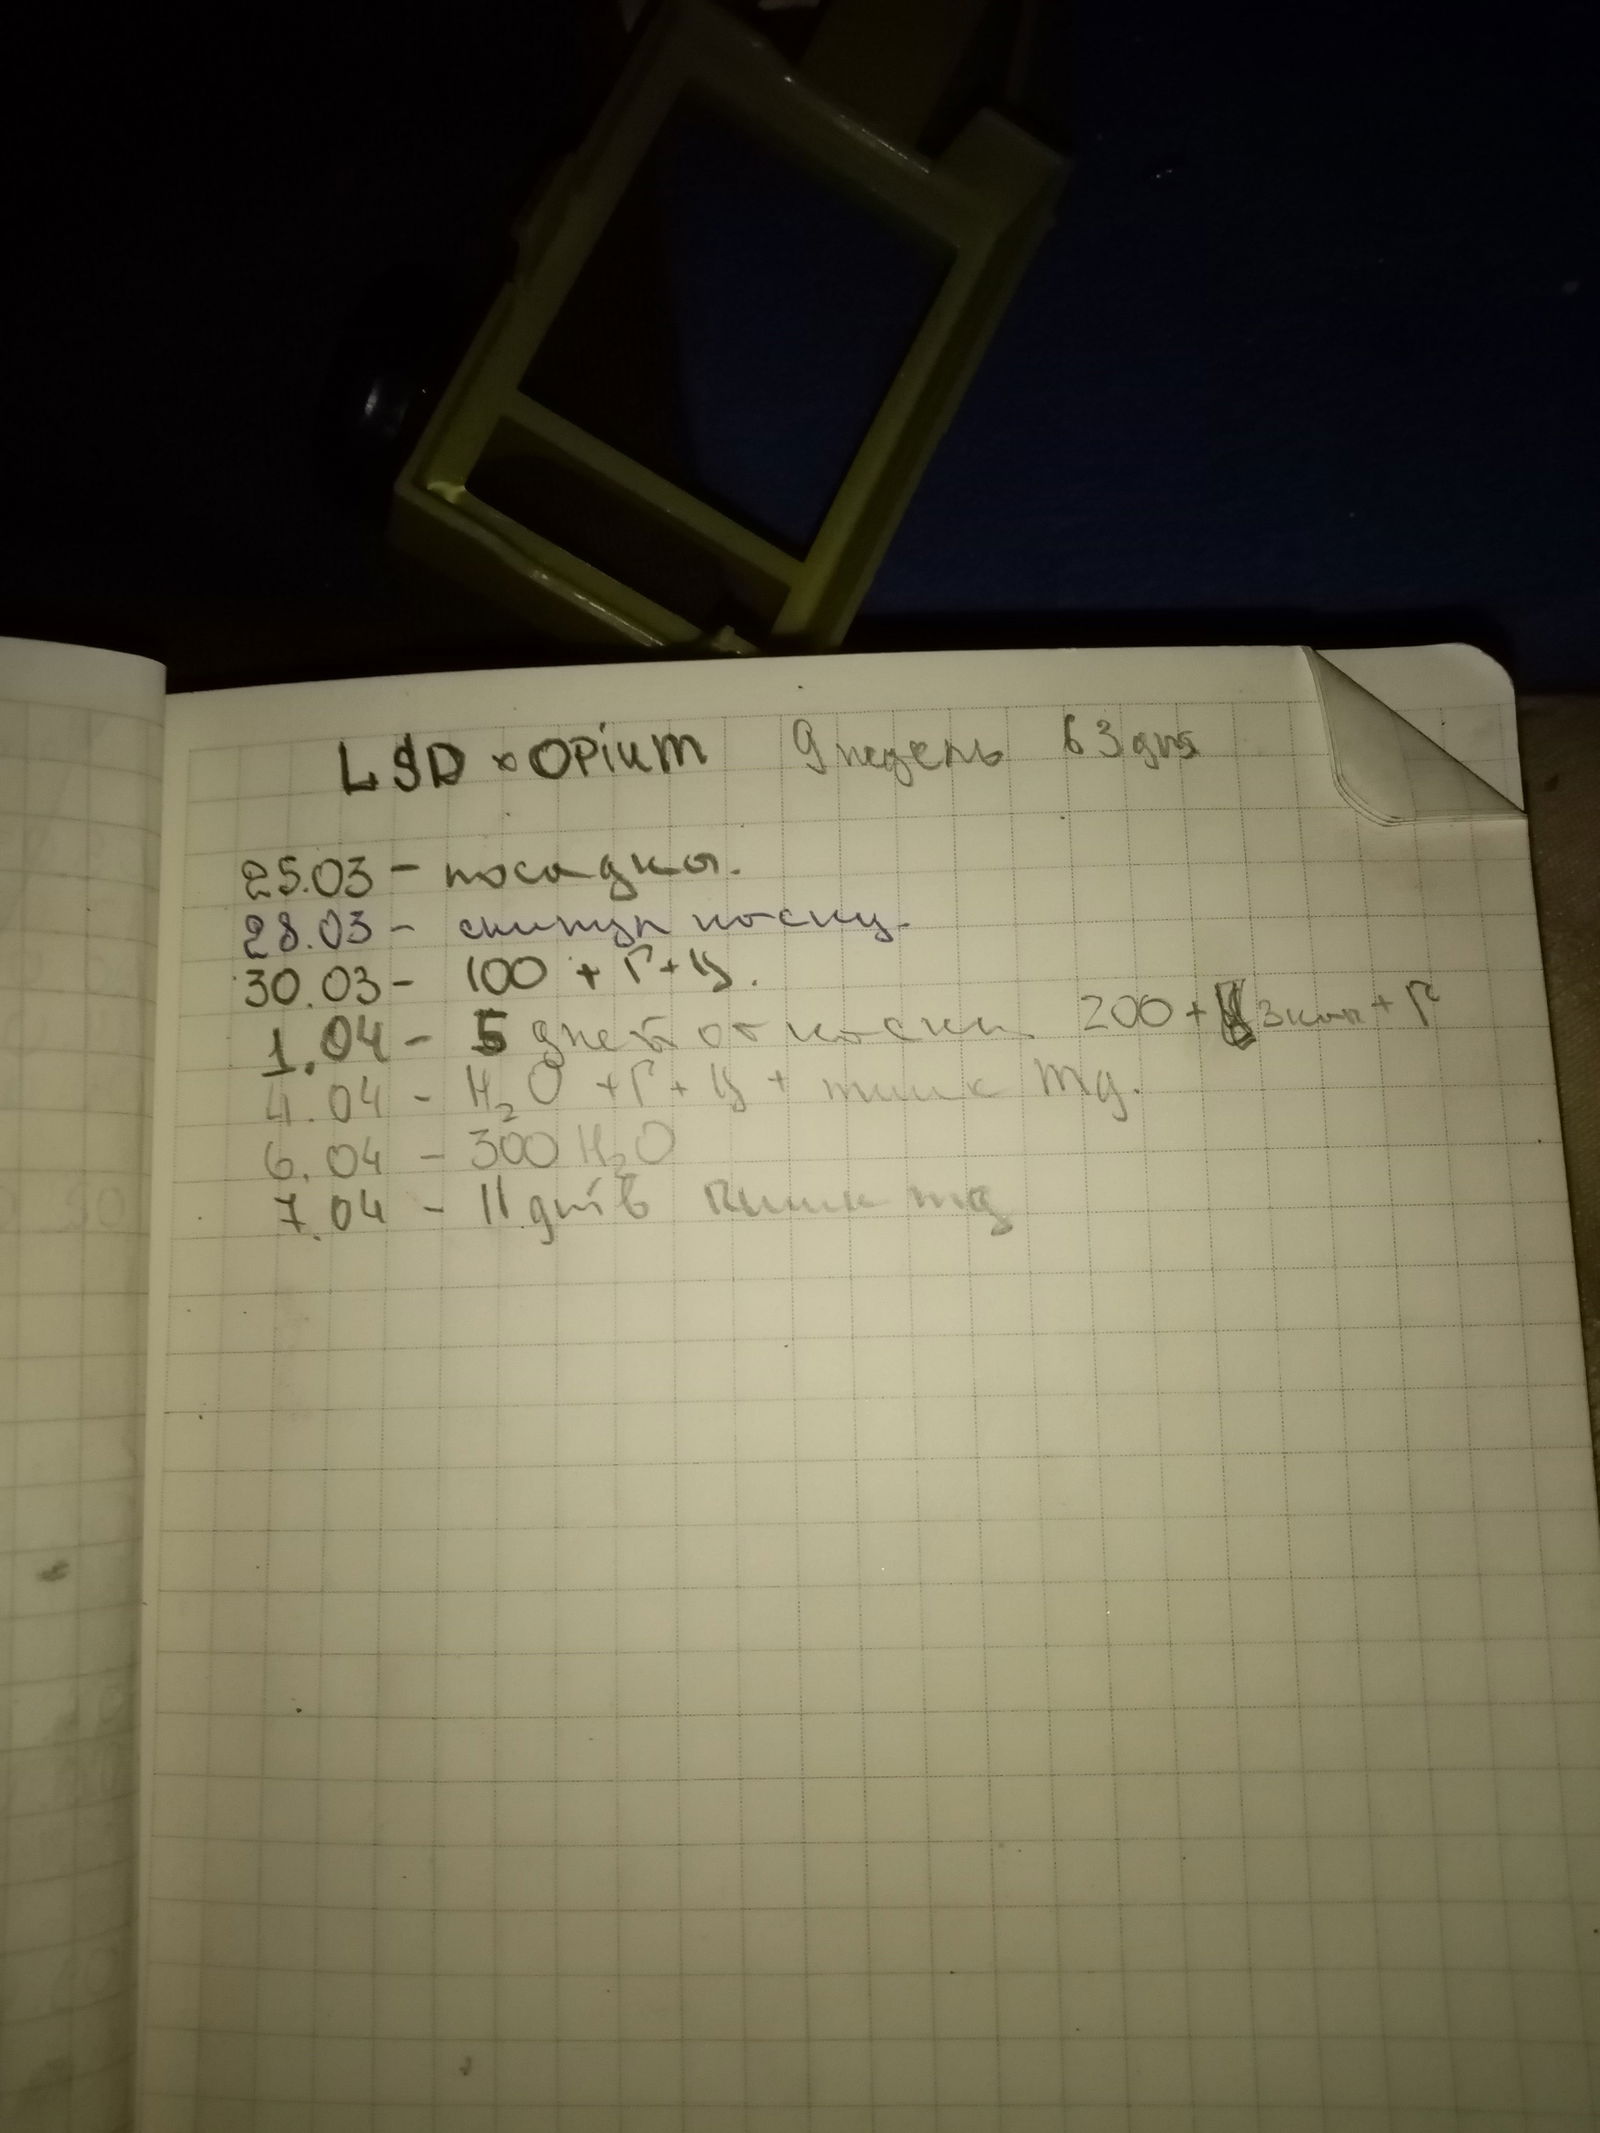 LSD x Opium 9 недель 63 дня
25.03 - посадка.
28.03 - скинул каску.
30.03 - 100 + Г + Ц.
1.04 - 5 дней от каски 200 + 3 кап + Г
4.04 - H₂O + Г + Ц + mg.
6.04 - 300 H₂O
7.04 - 11 днів mg